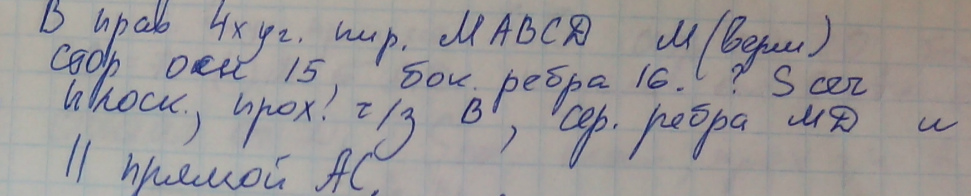 В прав 4х уг. пир. МАВСД М(верш)
стор осн 15, бок. ребра 16. ? S сеч
плоск., прох. ч/з В, сер. ребра МД и
|| прямой АС.